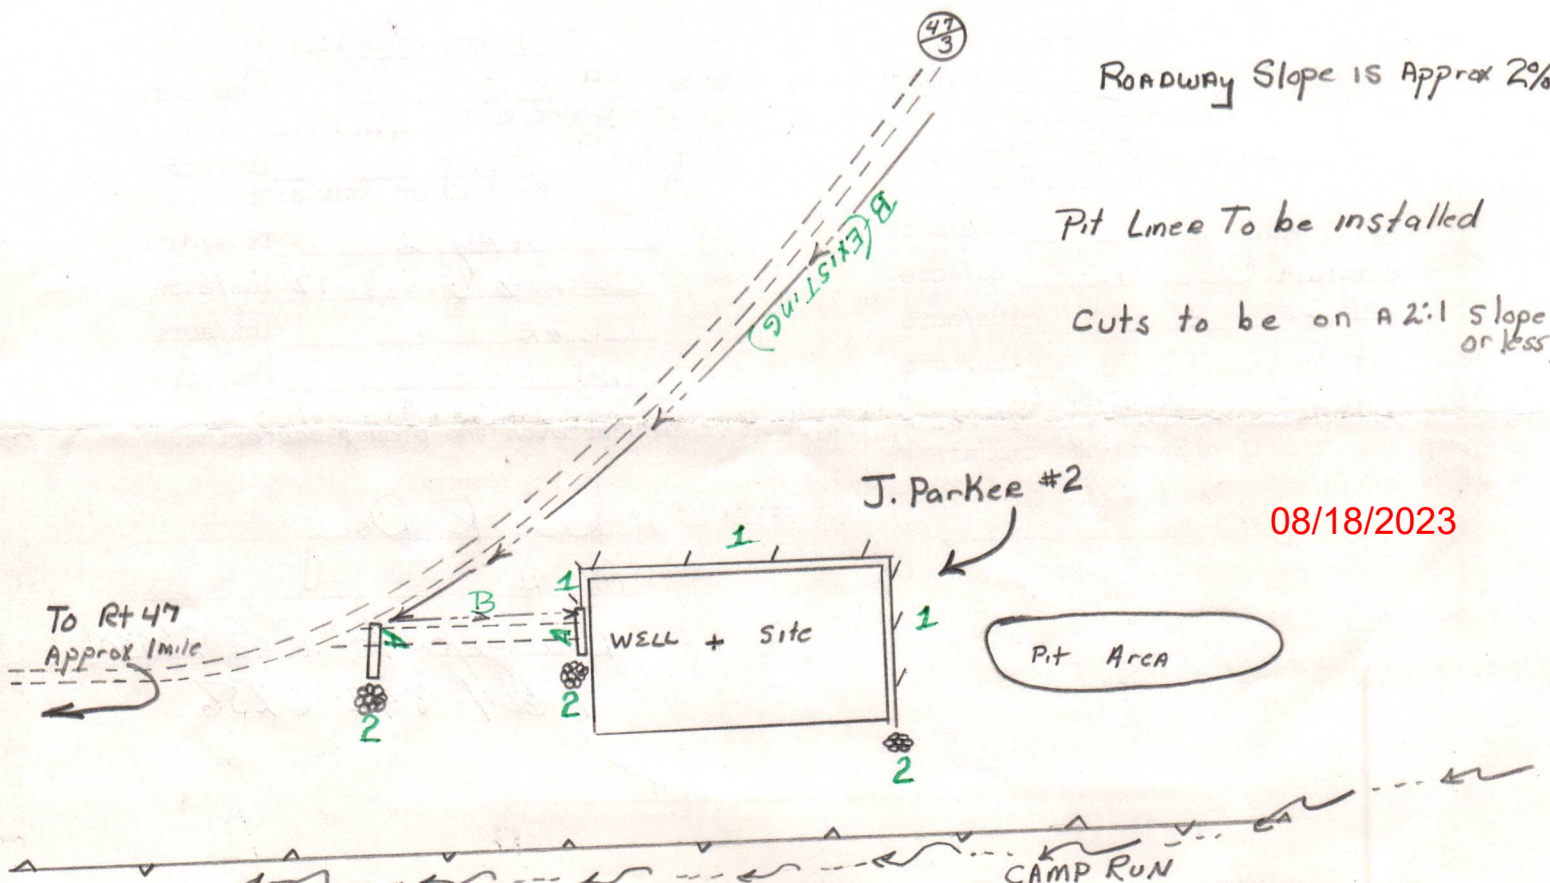 47
3
ROADWAY Slope is Approx 2%
B (EXISTING)
Pit Liner To be installed
Cuts to be on A 2:1 slope
or less
J. Parker #2
08/18/2023
1
1
B
To Rt 47
Approx 1 mile
A
A
WELL + Site
1
Pit Area
2
2
2
CAMP RUN